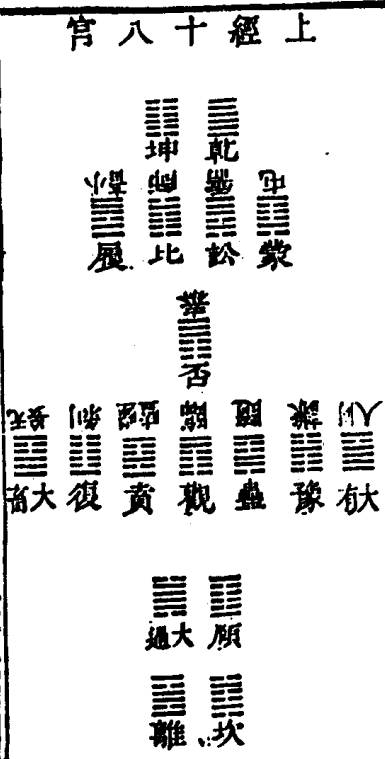 上經十八宮
乾 坤
屯 需 師 小畜
蒙 訟 比 履
泰
否
同人 謙 隨 臨 噬嗑 剝 无妄
大有 豫 蠱 觀 賁 復 大畜
頤 大過
坎 離